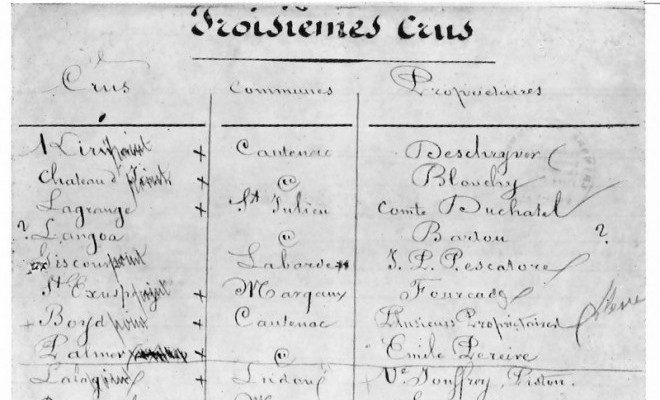 Troisièmes Crus
Crus Communes Propriétaires
Kirw point + Cantenac Deschryver
Chateau d' point + @ Blanchy
Lagrange + St Julien Comte Duchatel
? Langoa @ Barton ?
Giscours point Labarde J. P. Pescatore
St Exup point + Margaux Fourcade
+ Boyd point + Cantenac Plusieurs Propriétaires
Palmer @ Emile Pereire
+ Ludon Ve Jouffroy Piston.